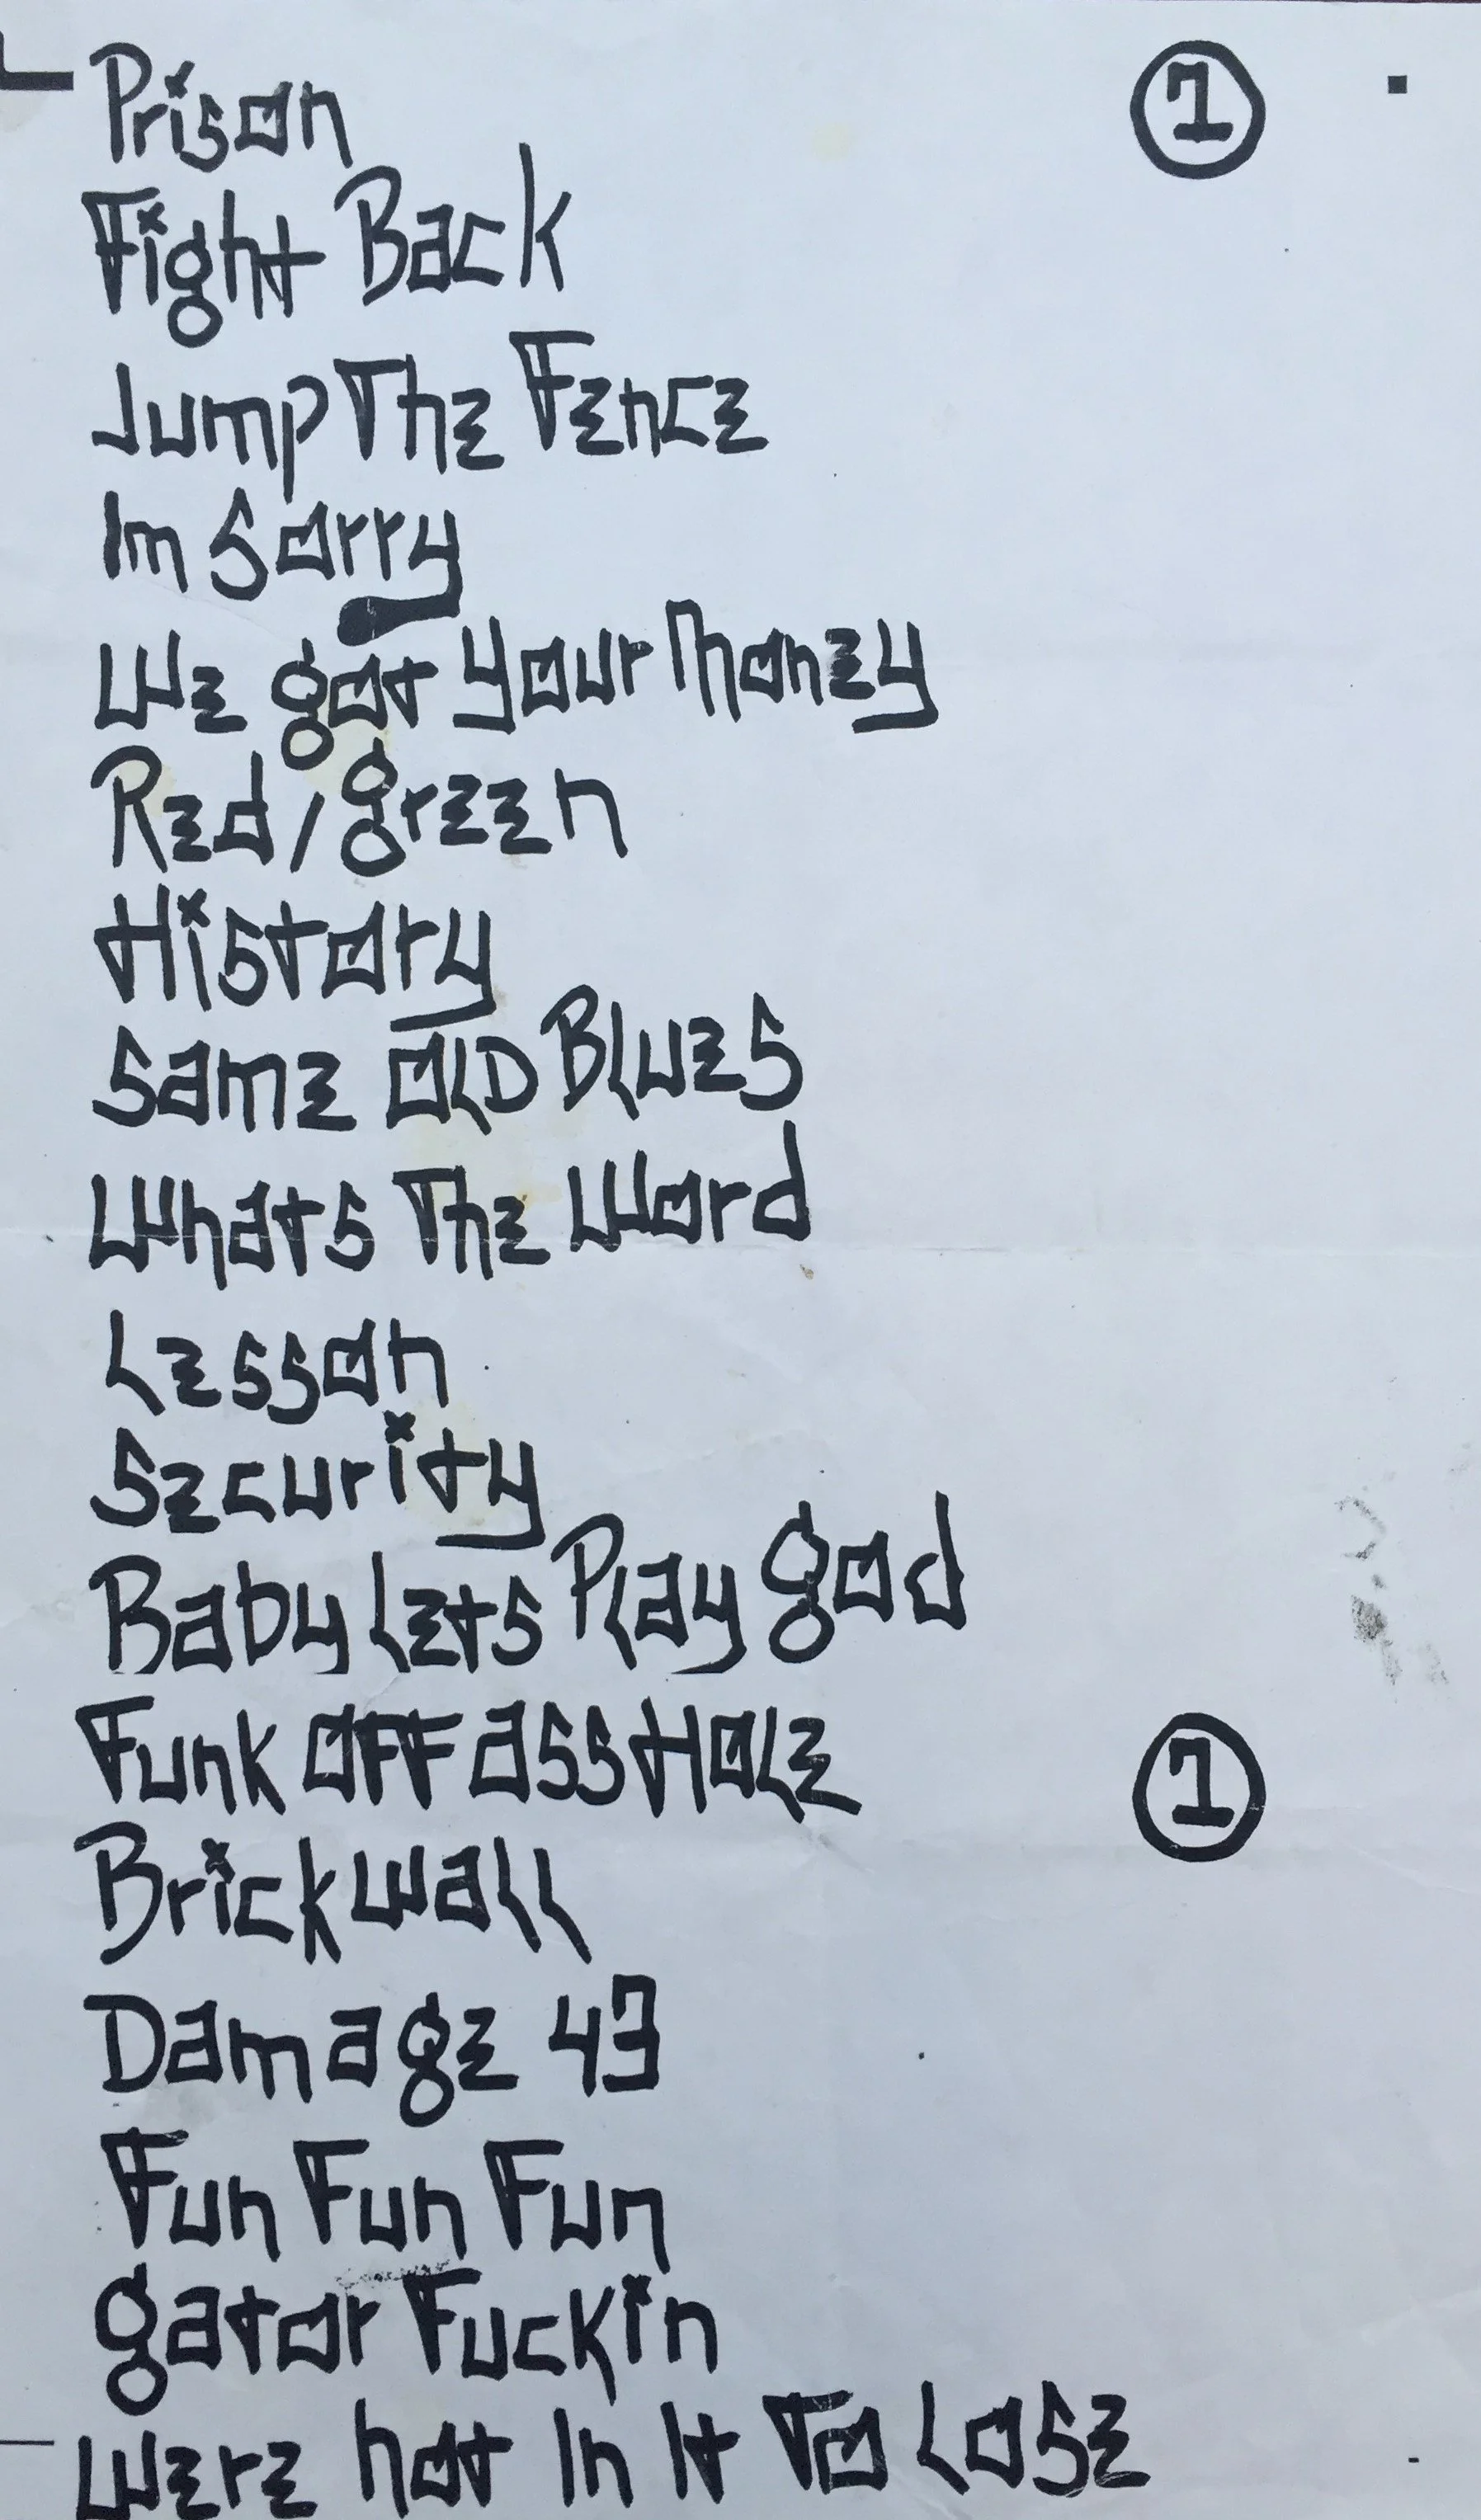 Prison
1
Fight Back
Jump The Fence
Im Sorry
We got your Money
Red/green
History
Same OLD Blues
Whats The Word
Lesson
Security
Baby Lets Play god
Funk OFF assHole
Brickwall
1
Damage 43
Fun Fun Fun
gator Fuckin
Were not In It To Lose